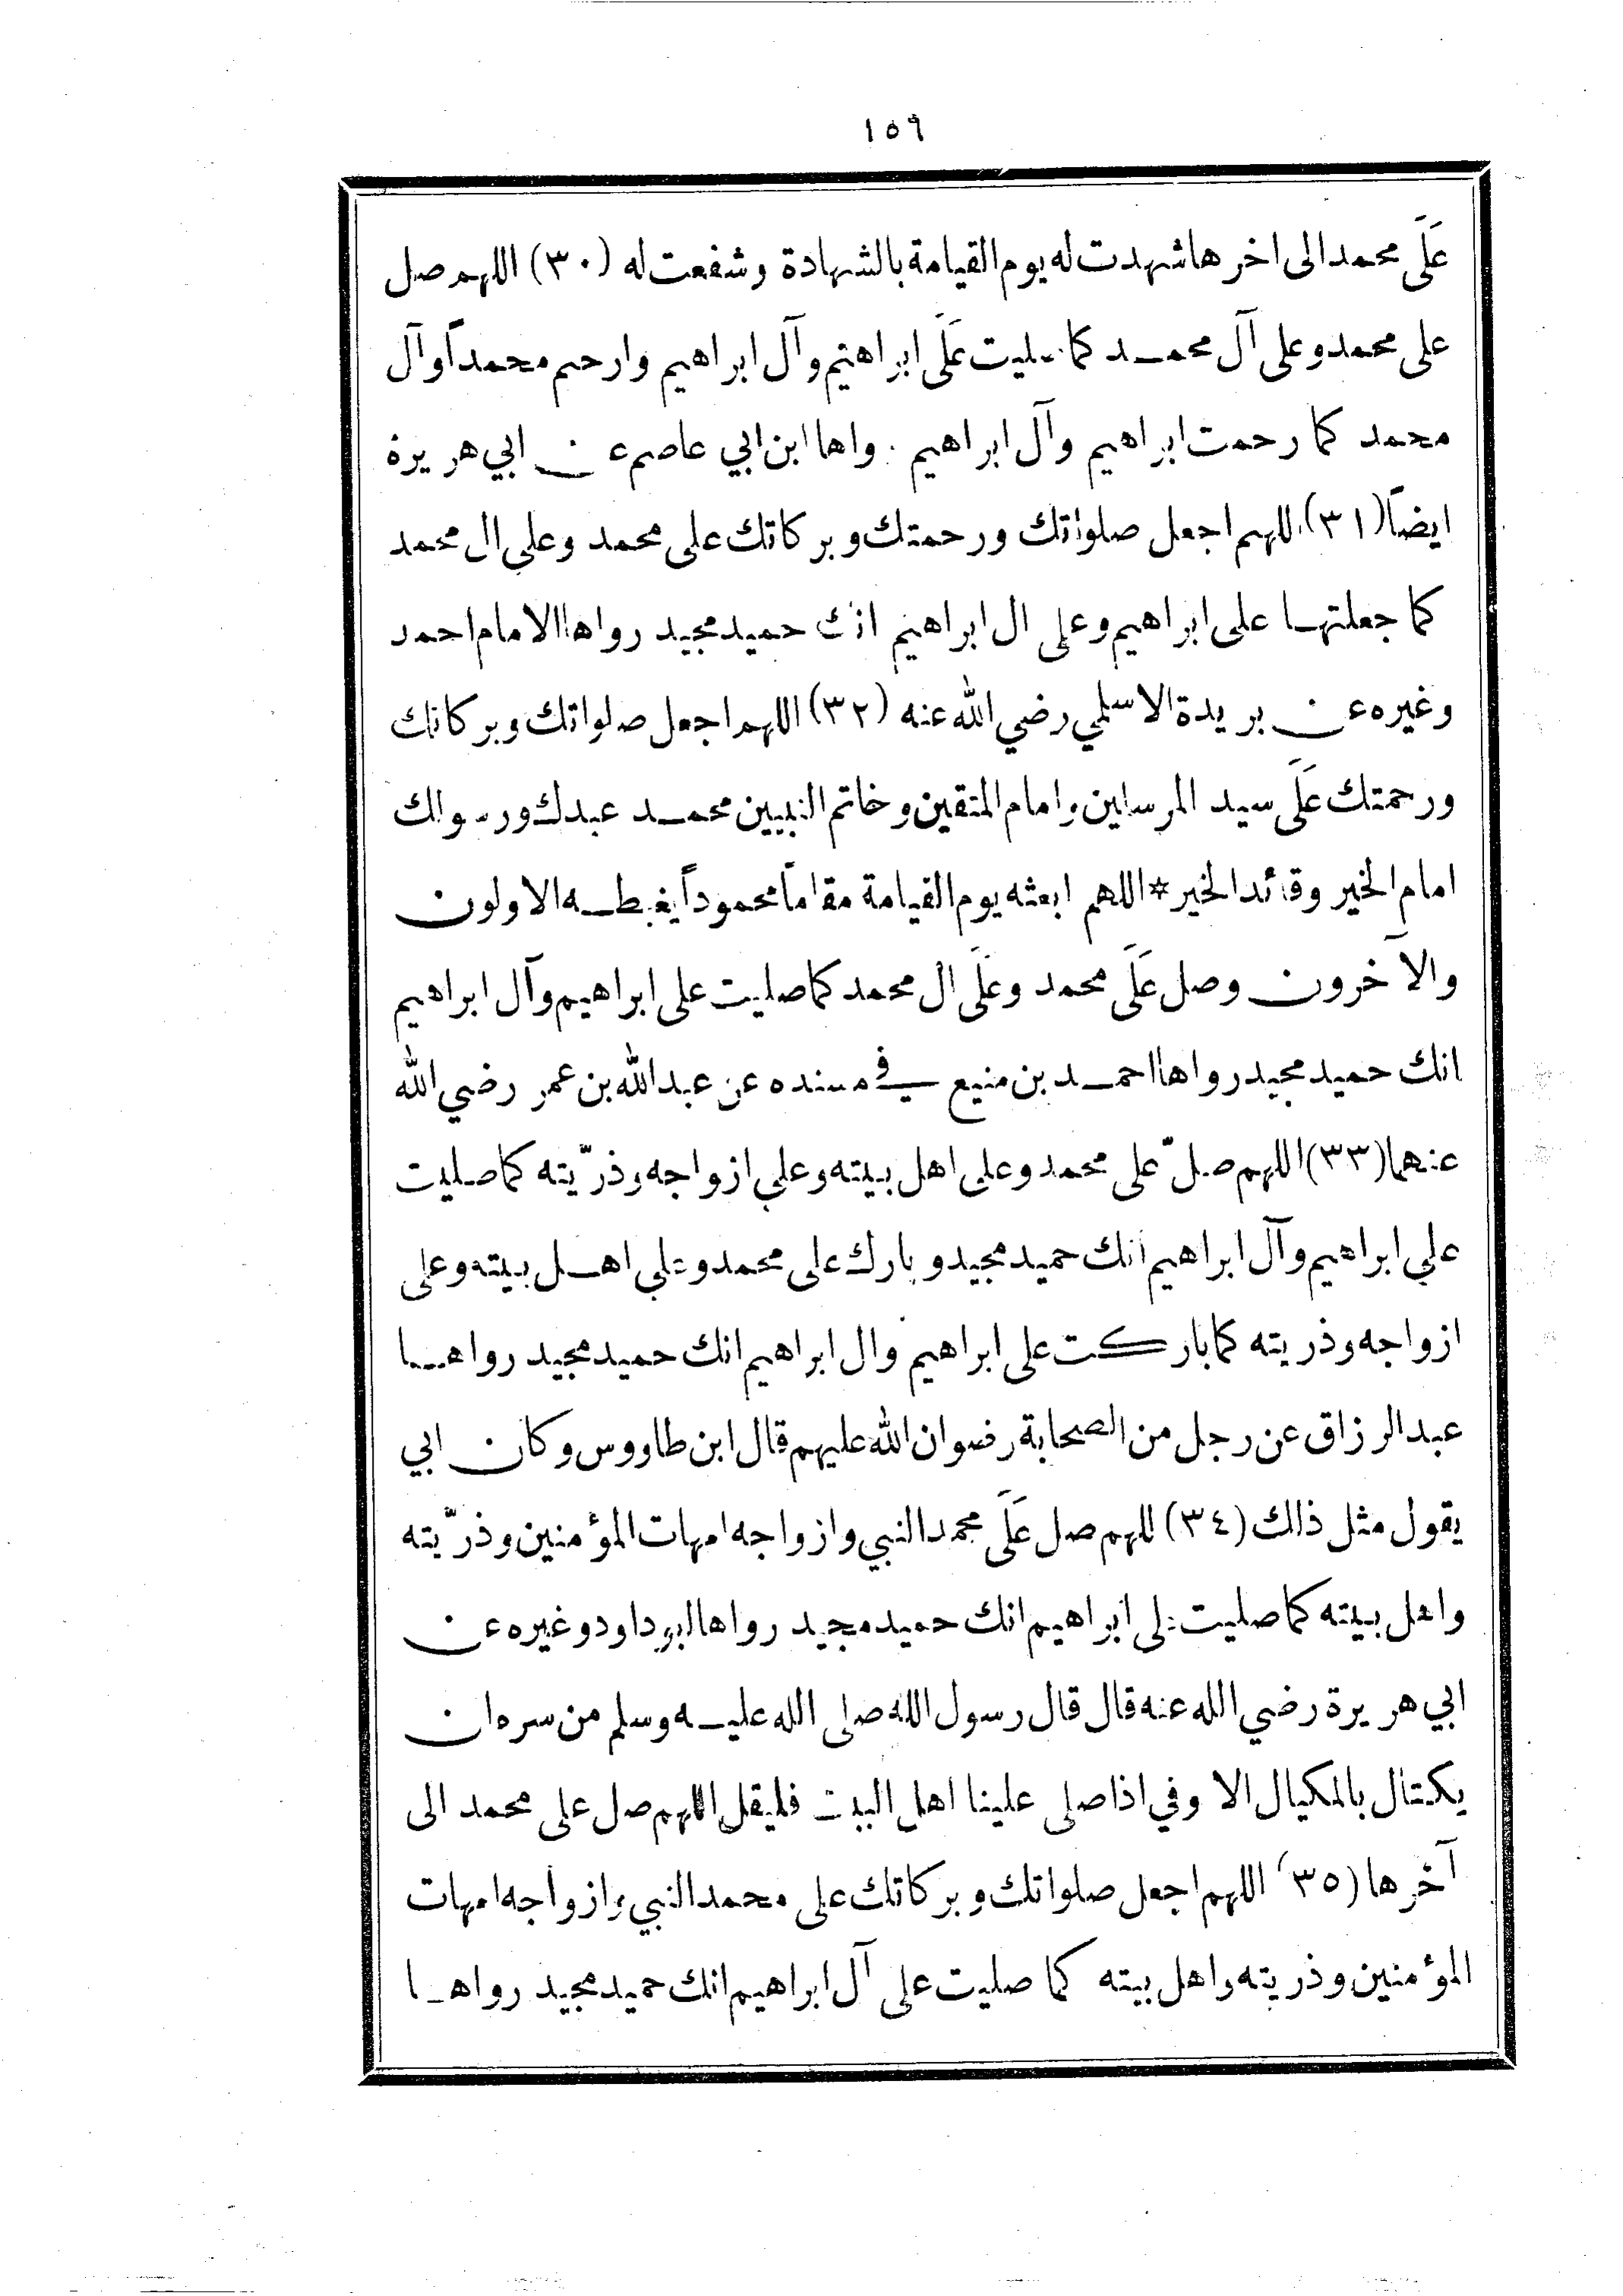 ١٥٩
عَلَى محمد الى اخرها شهدت له يوم القيامة بالشهادة وشفعت له (٣٠) اللهم صل
على محمد وعلى آل محمد كما صليت عَلَى ابراهيم وآل ابراهيم وارحم محمداً وآل
محمد كما رحمت ابراهيم وآل ابراهيم . واها ابن ابي عاصم عن ابي هريرة
ايضاً (٣١) اللهم اجعل صلواتك ورحمتك وبركاتك على محمد وعلى ال محمد
كما جعلتها على ابراهيم وعلى ال ابراهيم انك حميد مجيد رواها الامام احمد
وغيره عن بريدة الاسلمي رضي الله عنه (٣٢) اللهم اجعل صلواتك وبركاتك
ورحمتك عَلَى سيد المرسلين وامام المتقين وخاتم النبيين محمد عبدك ورسولك
امام الخير وقائد الخير * اللهم ابعثه يوم القيامة مقاماً محموداً يغبطه الاولون
والآخرون وصل عَلَى محمد وعَلَى ال محمد كما صليت على ابراهيم وآل ابراهيم
انك حميد مجيد رواها احمد بن منيع في مسنده عن عبد الله بن عمر رضي الله
عنهما (٣٣) اللهم صلّ على محمد وعلى اهل بيته وعلى ازواجه وذرّيته كما صليت
على ابراهيم وآل ابراهيم انك حميد مجيد وبارك على محمد وعلى اهل بيته وعلى
ازواجه وذريته كما باركت على ابراهيم وال ابراهيم انك حميد مجيد رواها
عبد الرزاق عن رجل من الصحابة رضوان الله عليهم قال ابن طاووس وكان ابي
يقول مثل ذلك (٣٤) اللهم صل عَلَى محمد النبي وازواجه امهات المؤمنين وذرّيته
واهل بيته كما صليت على ابراهيم انك حميد مجيد رواها ابو داود وغيره عن
ابي هريرة رضي الله عنه قال قال رسول الله صلى الله عليه وسلم من سره ان
يكتال بالمكيال الاوفي اذا صلى علينا اهل البيت فليقل اللهم صل على محمد الى
آخرها (٣٥) اللهم اجعل صلواتك وبركاتك على محمد النبي وازواجه امهات
المؤمنين وذريته واهل بيته كما صليت على آل ابراهيم انك حميد مجيد رواها